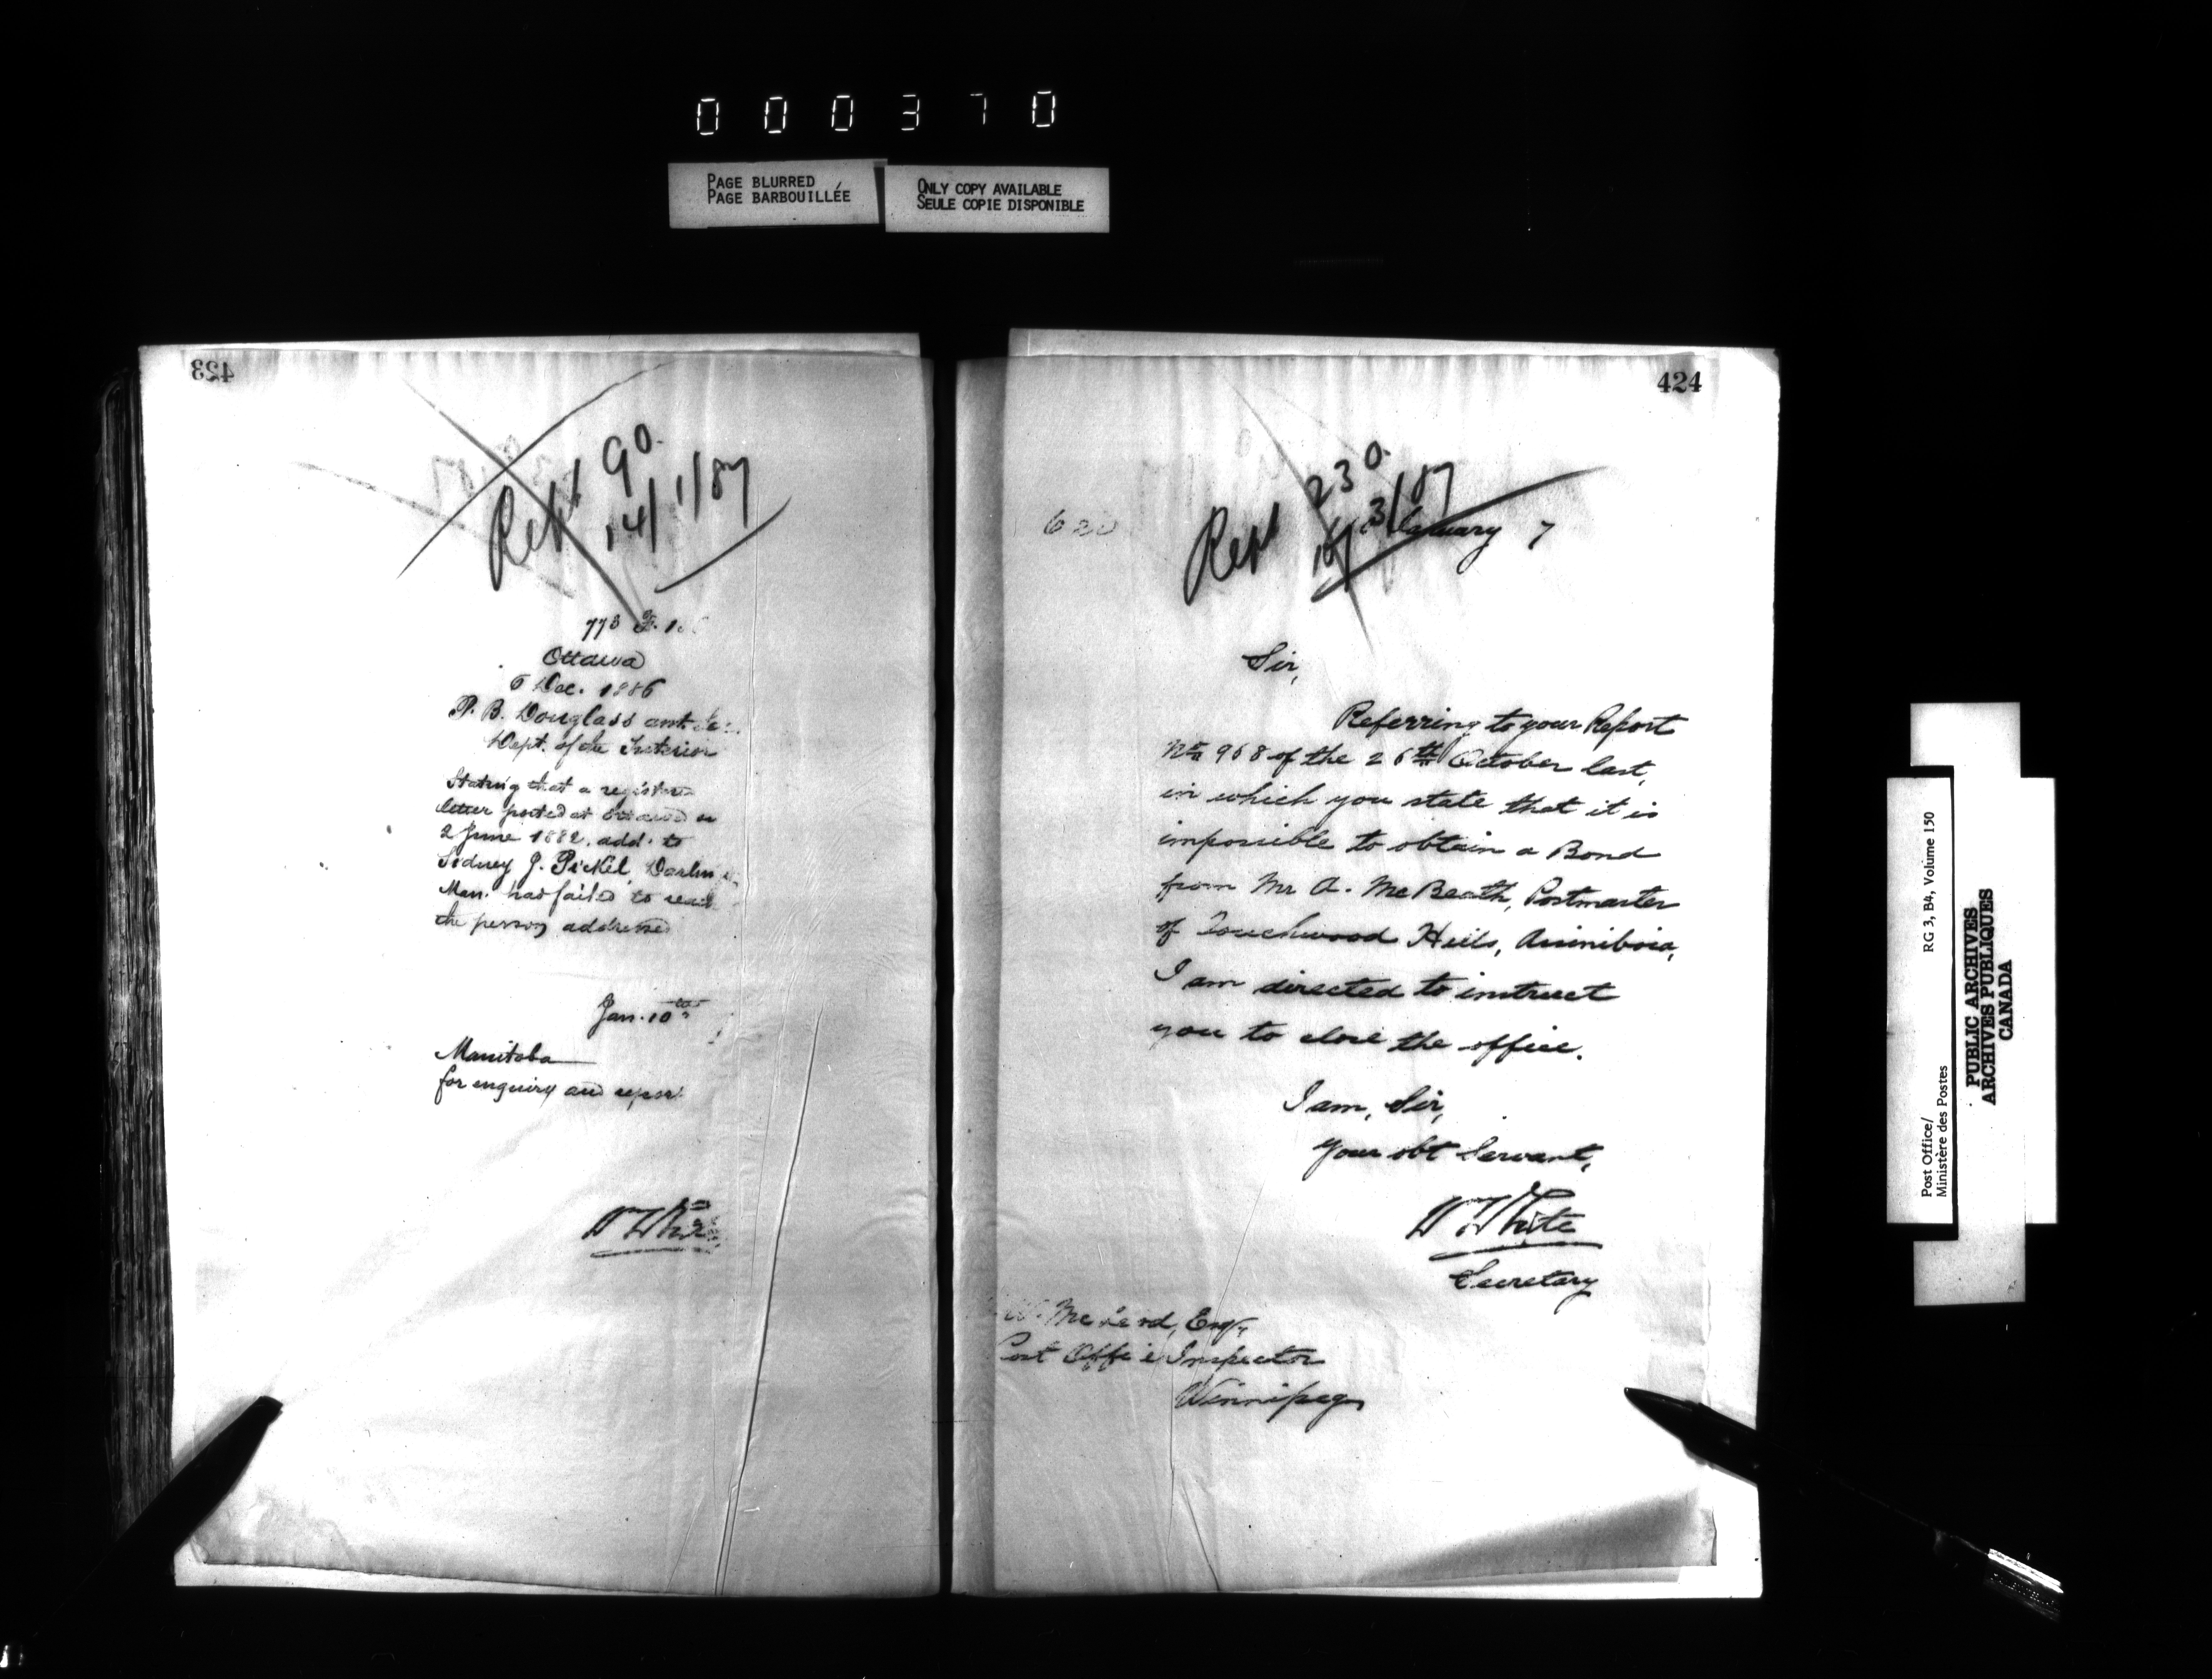 000370
PAGE BLURRED
PAGE BARBOUILLÉE
ONLY COPY AVAILABLE
SEULE COPIE DISPONIBLE
423
Rept 90
14/1/87
773
Ottawa
6 Dec. 1886
P. B. Douglass
Dept. of the Interior
Stating that a
letter posted at Ottawa on
2 June 1882. add. to
Sidney J. Pickel,
Man. had failed to
the person addressed
Jan. 10th
Manitoba
for enquiry and report
W White
424
Rept 230
3/87
7
Sir,
Referring to your Report
No 968 of the 26th October last,
in which you state that it is
impossible to obtain a Bond
from Mr A. McBeath, Postmaster
of Touchwood Hills, Assiniboia,
I am directed to instruct
you to close the office.
I am, Sir,
Your obt Servant,
W White
Secretary
Esqr
Post Office Inspector
Winnipeg
Post Office/
Ministère des Postes
RG 3, B4, Volume 150
PUBLIC ARCHIVES
ARCHIVES PUBLIQUES
CANADA